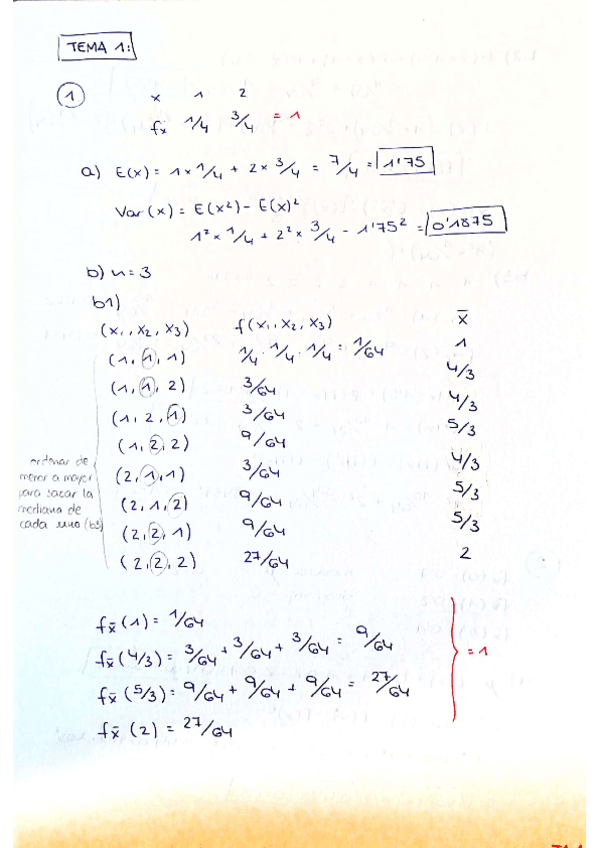 TEMA 1:
1 x 1 2
fx 1/4 3/4 = 1
a) E(x) = 1 × 1/4 + 2 × 3/4 = 7/4 = 1'75
Var (x) = E(x²) - E(x)²
1² × 1/4 + 2² × 3/4 - 1'75² = 0'1875
b) n = 3
b1)
(x₁, x₂, x₃) f(x₁, x₂, x₃) x̄
(1, 1, 1) 1/4 · 1/4 · 1/4 = 1/64 1
(1, 1, 2) 3/64 4/3
(1, 2, 1) 3/64 4/3
(1, 2, 2) 9/64 5/3
(2, 1, 1) 3/64 4/3
(2, 1, 2) 9/64 5/3
(2, 2, 1) 9/64 5/3
(2, 2, 2) 27/64 2
ordenar de
menor a mayor
para sacar la
mediana de
cada uno (b3)
fx̄ (1) = 1/64
fx̄ (4/3) = 3/64 + 3/64 + 3/64 = 9/64
fx̄ (5/3) = 9/64 + 9/64 + 9/64 = 27/64
fx̄ (2) = 27/64
= 1